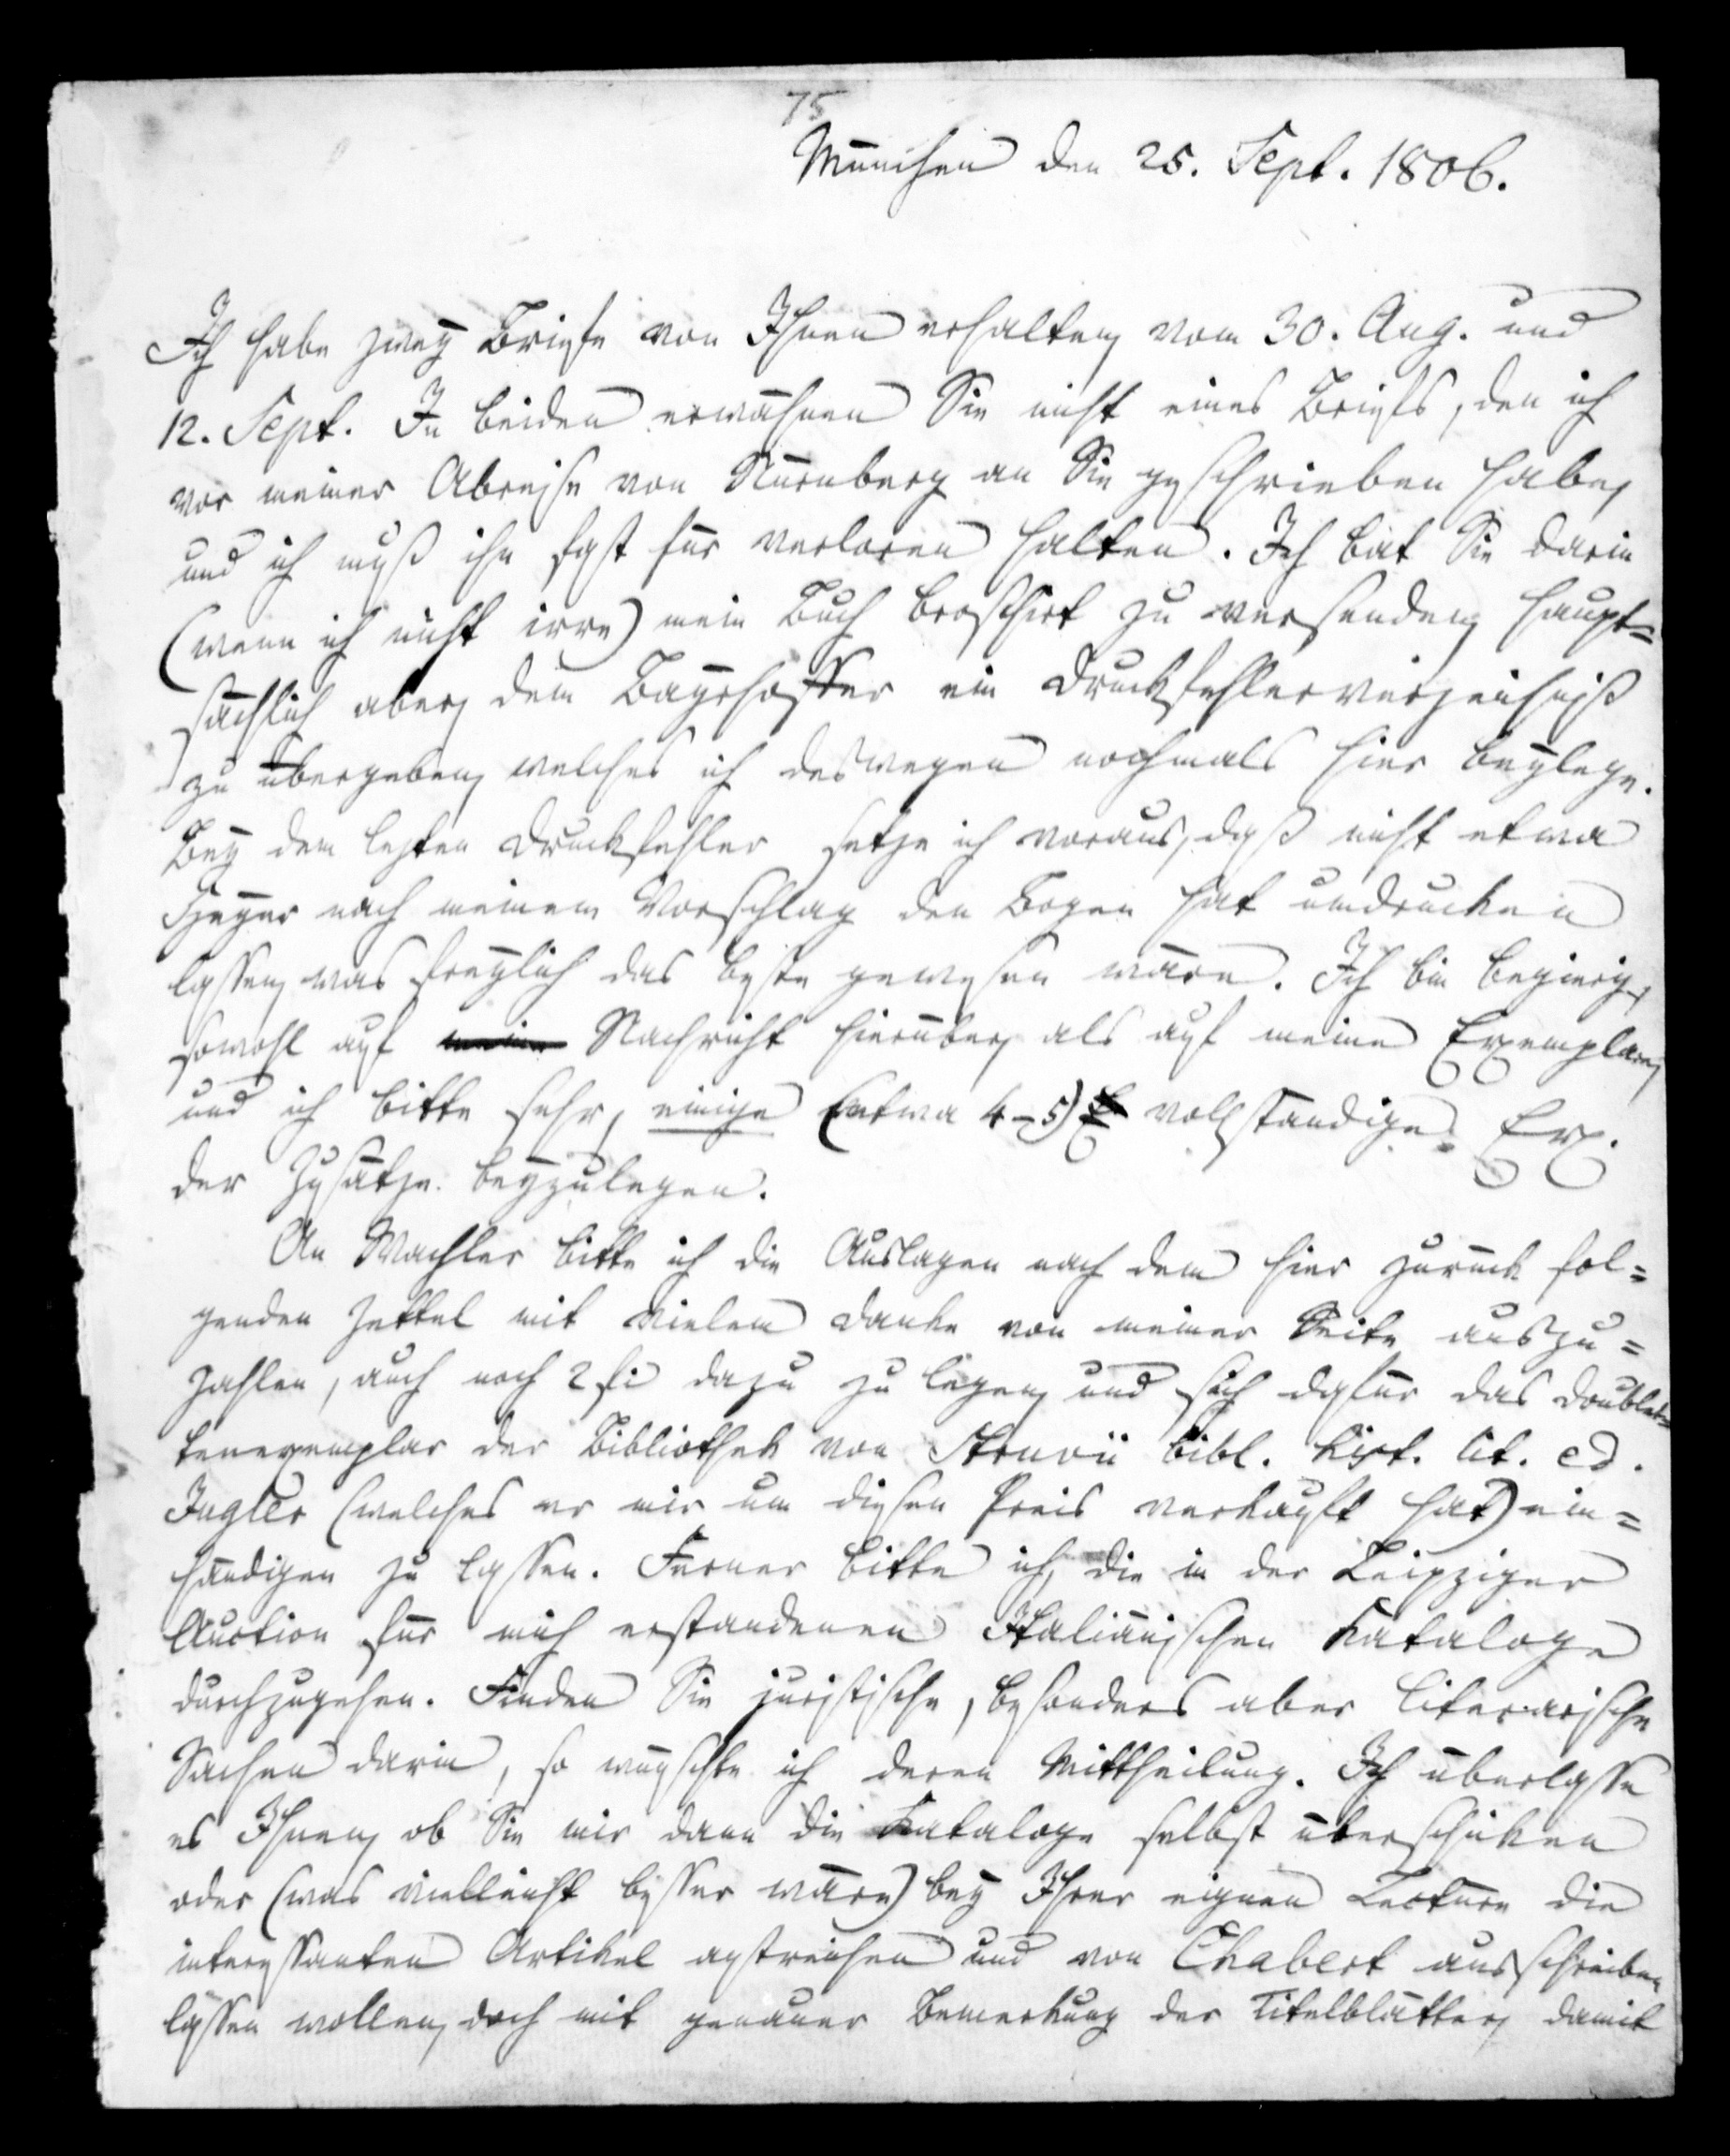 75
München den 25. Sept. 1806.
Ich habe zwey Briefe von Ihnen erhalten, vom 30. Aug. und
12. Sept. In beiden erwähnen Sie nicht eines Briefs, den ich
vor meiner Abreise von Nürnberg an Sie geschrieben habe,
und ich muß ihn fast für verloren halten. Ich bat Sie darin
(wenn ich nicht irre) mein Buch broschirt zu versenden, haupt=
sächlich aber, dem Bayrhoffer ein Druckfehlerverzeichniß
zu übergeben, welches ich deswegen nochmals hier beylege.
Bey dem lezten Druckfehler setze ich voraus, daß nicht etwa
Heyer nach meinem Vorschlag den Bogen hat umdrucken
lassen, was freylich das beste gewesen wäre. Ich bin begierig,
sowohl auf Nachricht hierüber, als auf meine Exemplare,
und ich bitte sehr, einige (etwa 4-5) vollständige Ex.
der Zusätze beyzulegen.
An Wachler bitte ich die Auslagen nach dem hier zurück fol=
genden Zettel mit vielem Danke von meiner Seite auszu=
zahlen, auch noch 2 fl dazu zu legen, und sich dafür das Doublet=
tenexemplar der Bibliothek von Struvii bibl. hist. lit. ed.
Jugler (welches er mir um diesen Preis verkauft hat) ein=
händigen zu lassen. Ferner bitte ich, die in der Leipziger
Auction für mich erstandenen Italiänischen Kataloge
durchzugehen. Finden Sie juristische, besonders aber literarische
Sachen darin, so wünschte ich deren Mittheilung. Ich überlasse
es Ihnen, ob Sie mir dann die Kataloge selbst überschicken
oder (was vielleicht besser wäre) bey Ihrer eignen Lectüre die
interessanten Artikel anstreichen und von Chabert ausschreiben
lassen wollen, doch mit genauer Bemerkung der Titelblätter, damit